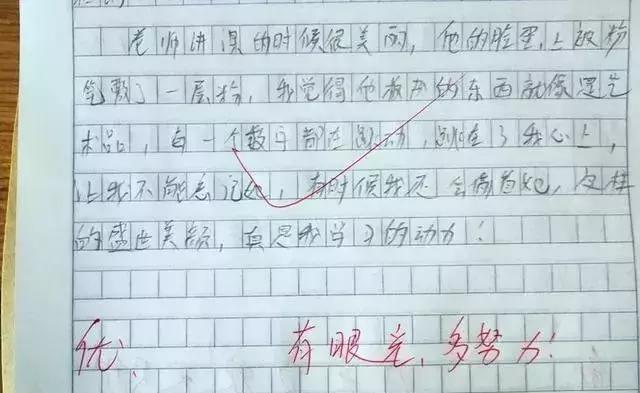 老师讲课的时候很美丽，他的脸蛋上被粉
笔敷了一层粉，我觉得他教出的东西就像是艺
术品，每一个数字都在跳动，跳在了我心上，
让我不能忘记她，有时候我还会偷看她，这样
的盛世美颜，真是我学习的动力！
优、 有眼光，多努力！